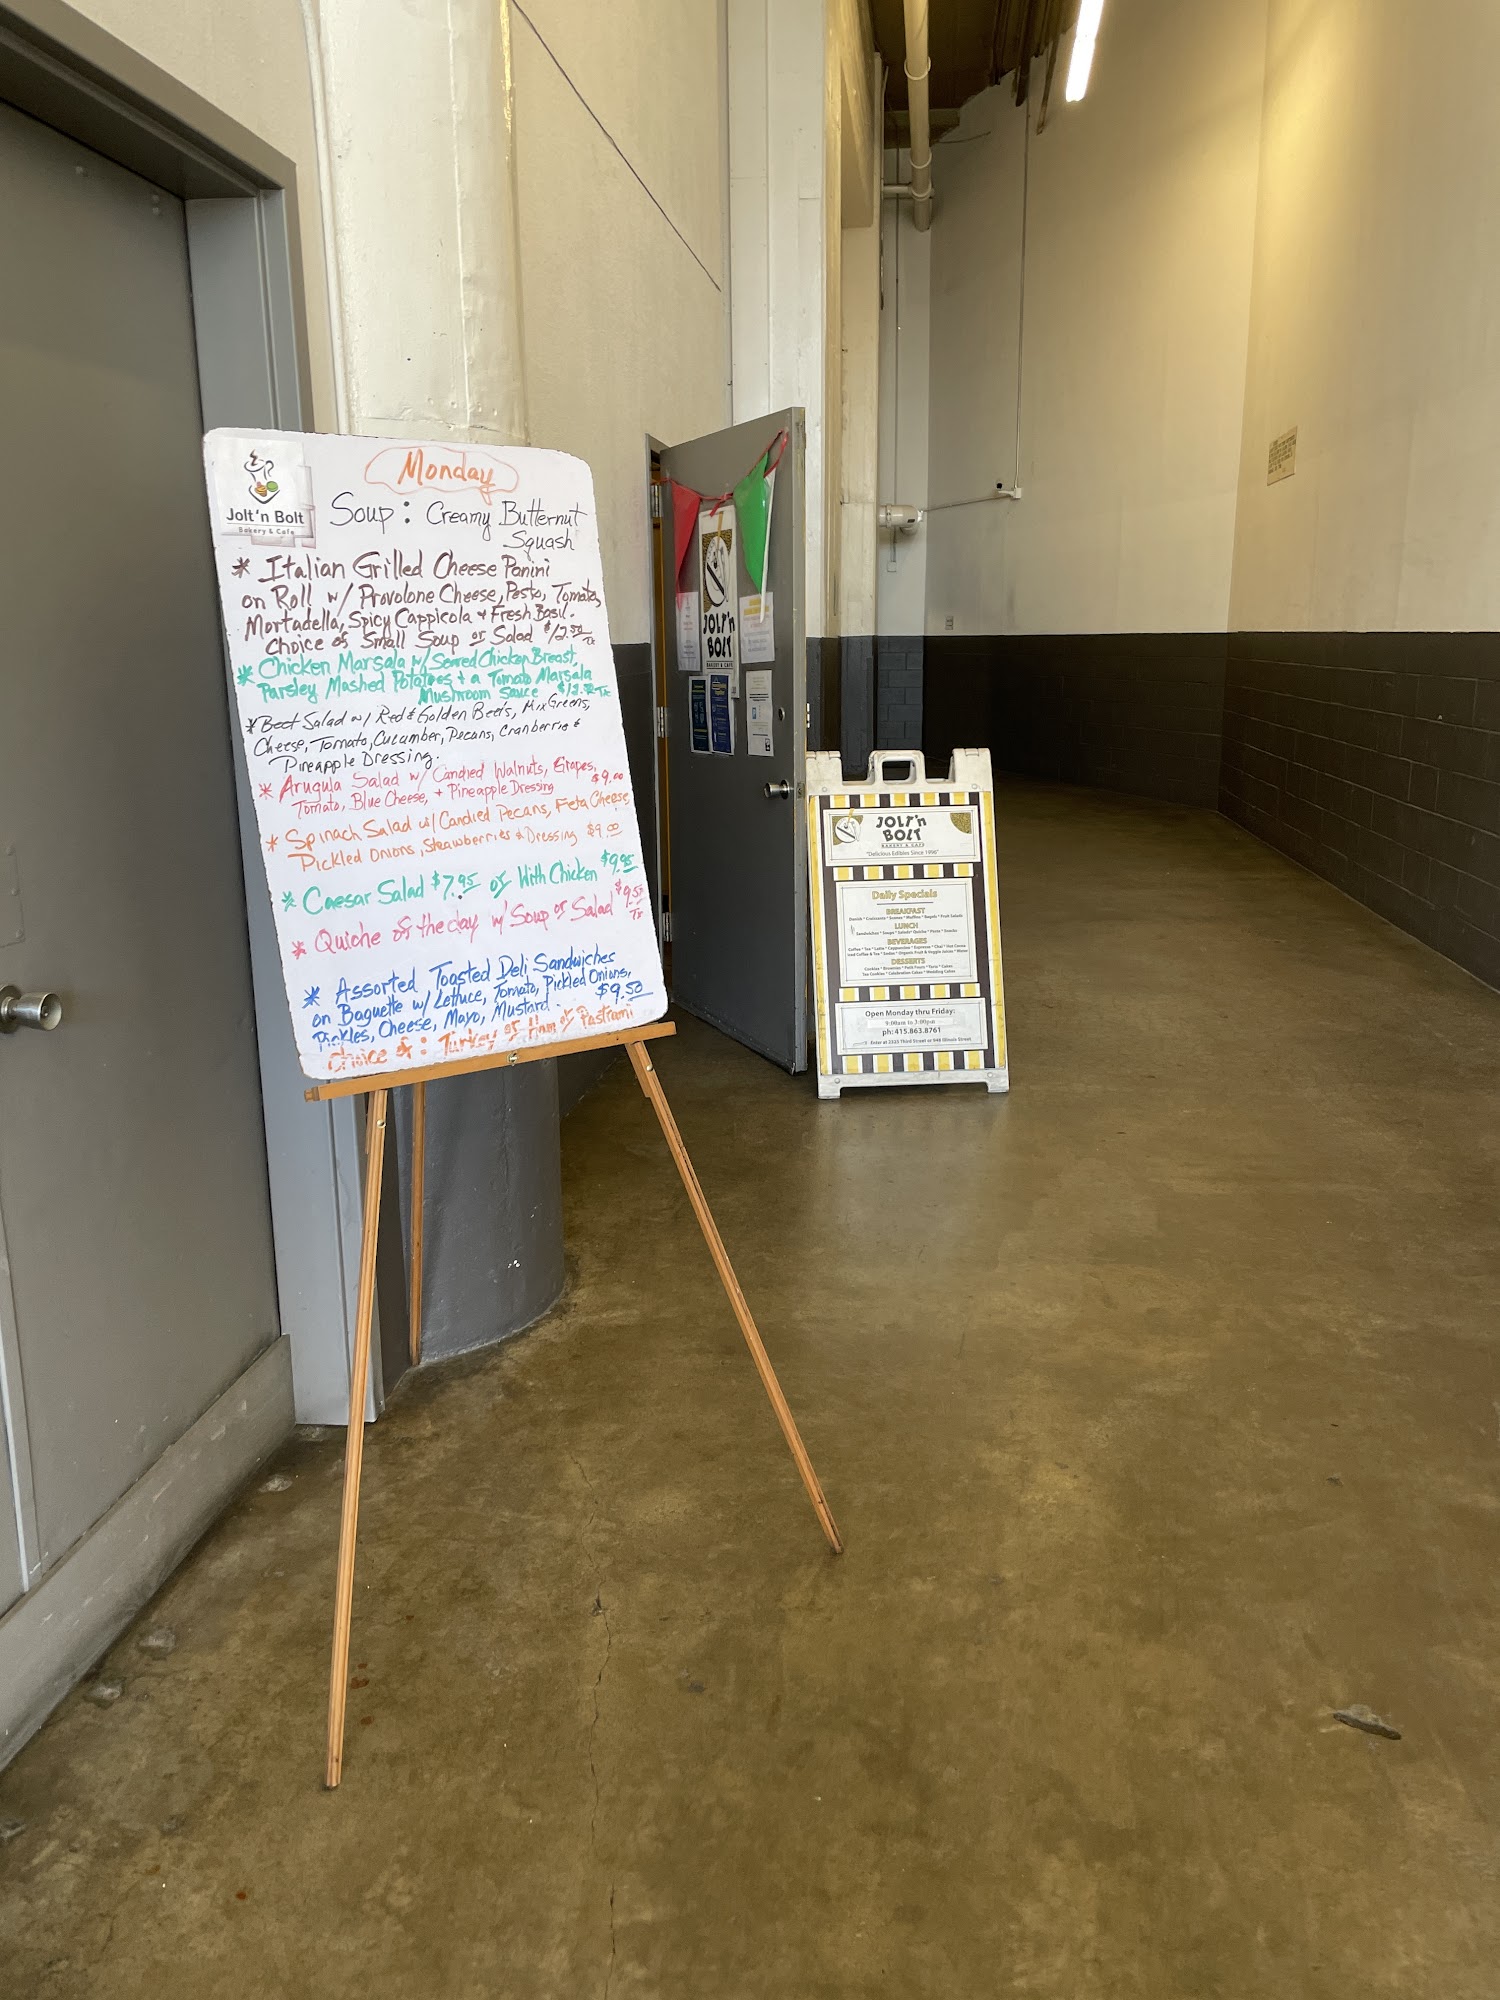 Jolt'n Bolt
Bakery & Cafe
Monday
Soup: Creamy Butternut
Squash
* Italian Grilled Cheese Panini
on Roll w/ Provolone Cheese, Pesto, Tomato,
Mortadella, Spicy Cappicola + Fresh Basil.
Choice of Small Soup or Salad $12.50 Tx
* Chicken Marsala w/ Seared Chicken Breast,
Parsley Mashed Potatoes + a Tomato Marsala
Mushroom Sauce $12.50 Tx
* Beet Salad w/ Red & Golden Beets, Mix Greens,
Cheese, Tomato, Cucumber, Pecans, Cranberrie &
Pineapple Dressing.
* Arugula Salad w/ Candied Walnuts, Grapes,
Tomato, Blue Cheese, + Pineapple Dressing $9.00
* Spinach Salad w/ Candied Pecans, Feta Cheese
Pickled Onions, Strawberries & Dressing $9.00
* Caesar Salad $7.95 or With Chicken $9.95
* Quiche of the day w/ Soup or Salad $9.50 Tx
* Assorted Toasted Deli Sandwiches
on Baguette w/ Lettuce, Tomato, Pickled Onions,
Pickles, Cheese, Mayo, Mustard. $9.50
Choice of: Turkey or Ham or Pastrami
JOLT'n
BOLT
BAKERY & CAFE
JOLT'n
BOLT
BAKERY & CAFE
"Delicious Edibles Since 1996"
Daily Specials
BREAKFAST
Danish * Croissants * Scones * Muffins * Bagels * Fruit Salads
LUNCH
Sandwiches * Soups * Salads * Quiche * Pasta * Snacks
BEVERAGES
Coffee * Tea * Latte * Cappuccino * Espresso * Chai * Hot Cocoa
Iced Coffee & Tea * Sodas * Organic Fruit & Veggie Juices * Water
DESSERTS
Cookies * Brownies * Petit Fours * Tarts * Cakes
Tea Cookies * Celebration Cakes * Wedding Cakes
Open Monday thru Friday:
9:00am to 3:00pm
ph: 415.863.8761
Enter at 2325 Third Street or 948 Illinois Street